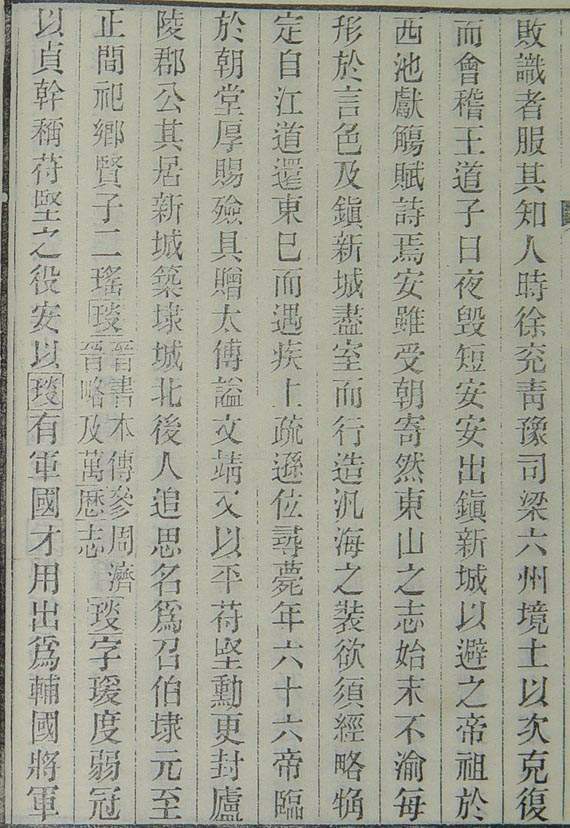 敗識者服其知人時徐兖靑豫司梁六州境土以次克復
而會稽王道子日夜毁短安安出鎭新城以避之帝祖於
西池獻觴賦詩焉安雖受朝寄然東山之志始末不渝每
形於言色及鎭新城盡室而行造汎海之裝欲須經略犓
定自江道還東巳而遇疾上疏遜位尋薨年六十六帝臨
於朝堂厚賜殮具贈太傅謚文靖又以平苻堅勳更封廬
陵郡公其居新城築埭城北後人追思名爲召伯埭元至
正間祀鄉賢子二瑤琰晉書本傳參周濟
晉略及萬歷志
琰字瑗度弱冠
以貞幹稱苻堅之役安以琰有軍國才用出爲輔國將軍